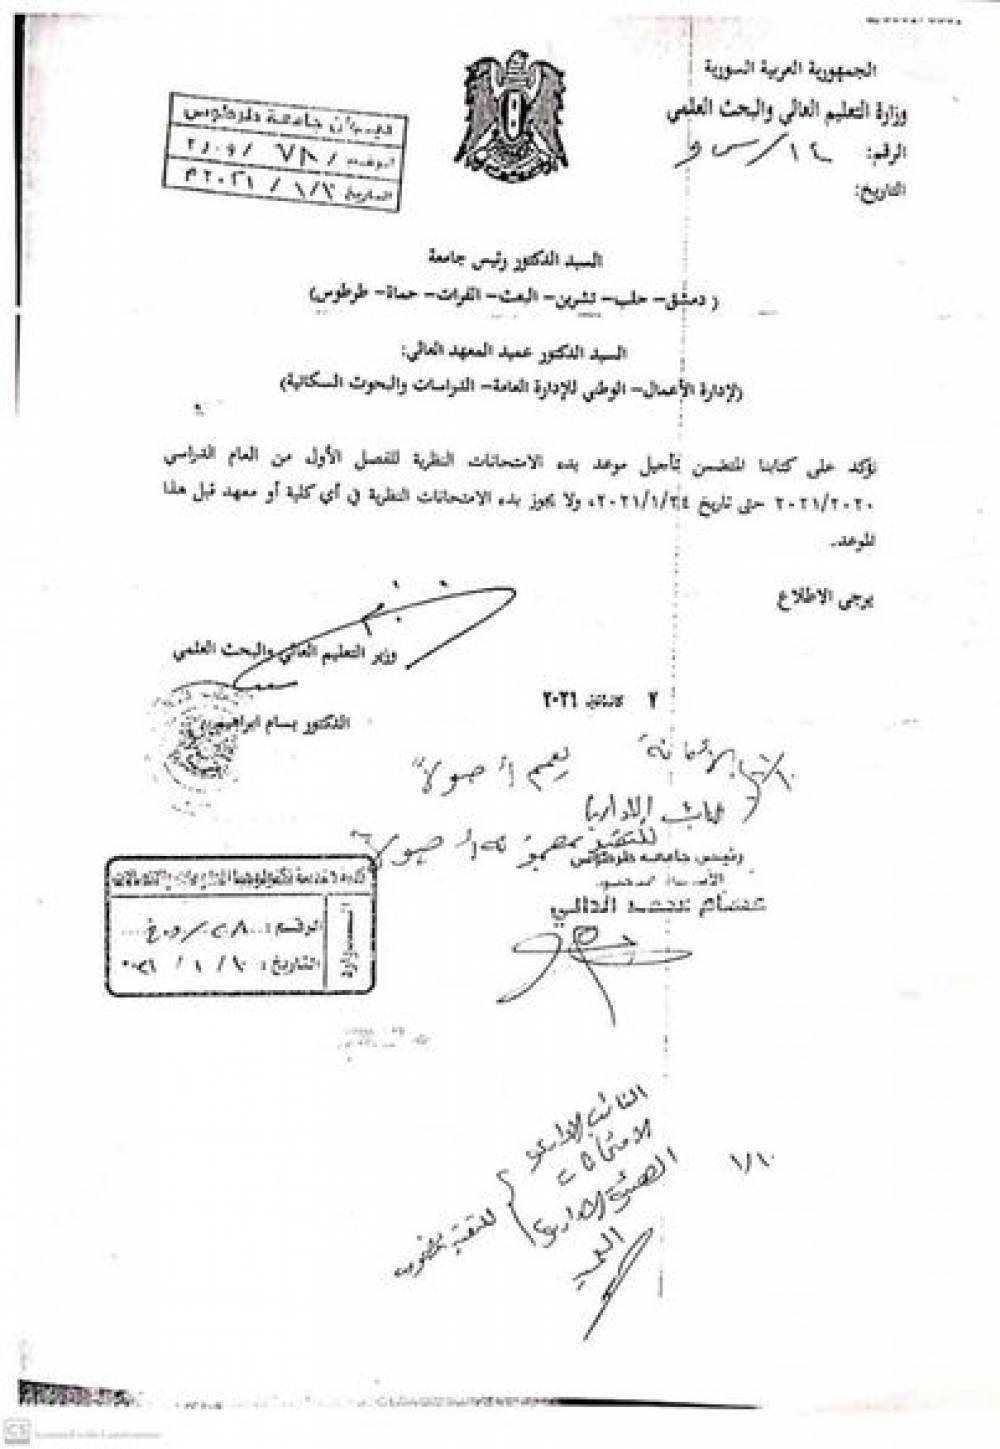 الجمهورية العربية السورية
وزارة التعليم العالي والبحث العلمي
الرقم:
التاريخ:
ديوان جامعة طرطوس
الرقم /
التاريخ / ٢٠٢١ م
السيد الدكتور رئيس جامعة
( دمشق- حلب- تشرين- البعث- الفرات- حماة- طرطوس)
السيد الدكتور عميد المعهد العالي:
(لإدارة الأعمال- الوطني للإدارة العامة- الدراسات والبحوث السكانية)
نؤكد على كتابنا المتضمن تأجيل موعد بدء الامتحانات النظرية للفصل الأول من العام الدراسي
٢٠٢١/٢٠٢٠ حتى تاريخ ٢٠٢١/١/٢٤، ولا يجوز بدء الامتحانات النظرية في أي كلية أو معهد قبل هذا
الموعد.
يرجى الاطلاع
وزير التعليم العالي والبحث العلمي
الدكتور بسام ابراهيم
٢ ٢٠٢١
الأمانة يعمم أصولاً
النائب الإداري
رئيس جامعة طرطوس
الأستاذ الدكتور
عصام محمد الدالي
كلية هندسة تكنولوجيا المعلومات والاتصالات
الرقم:
التاريخ: ١٠ / ١ / ٢٠٢١
الواردة
النائب الإداري
الامتحانات
١/١٠
العميد
CS
Scanned with CamScanner